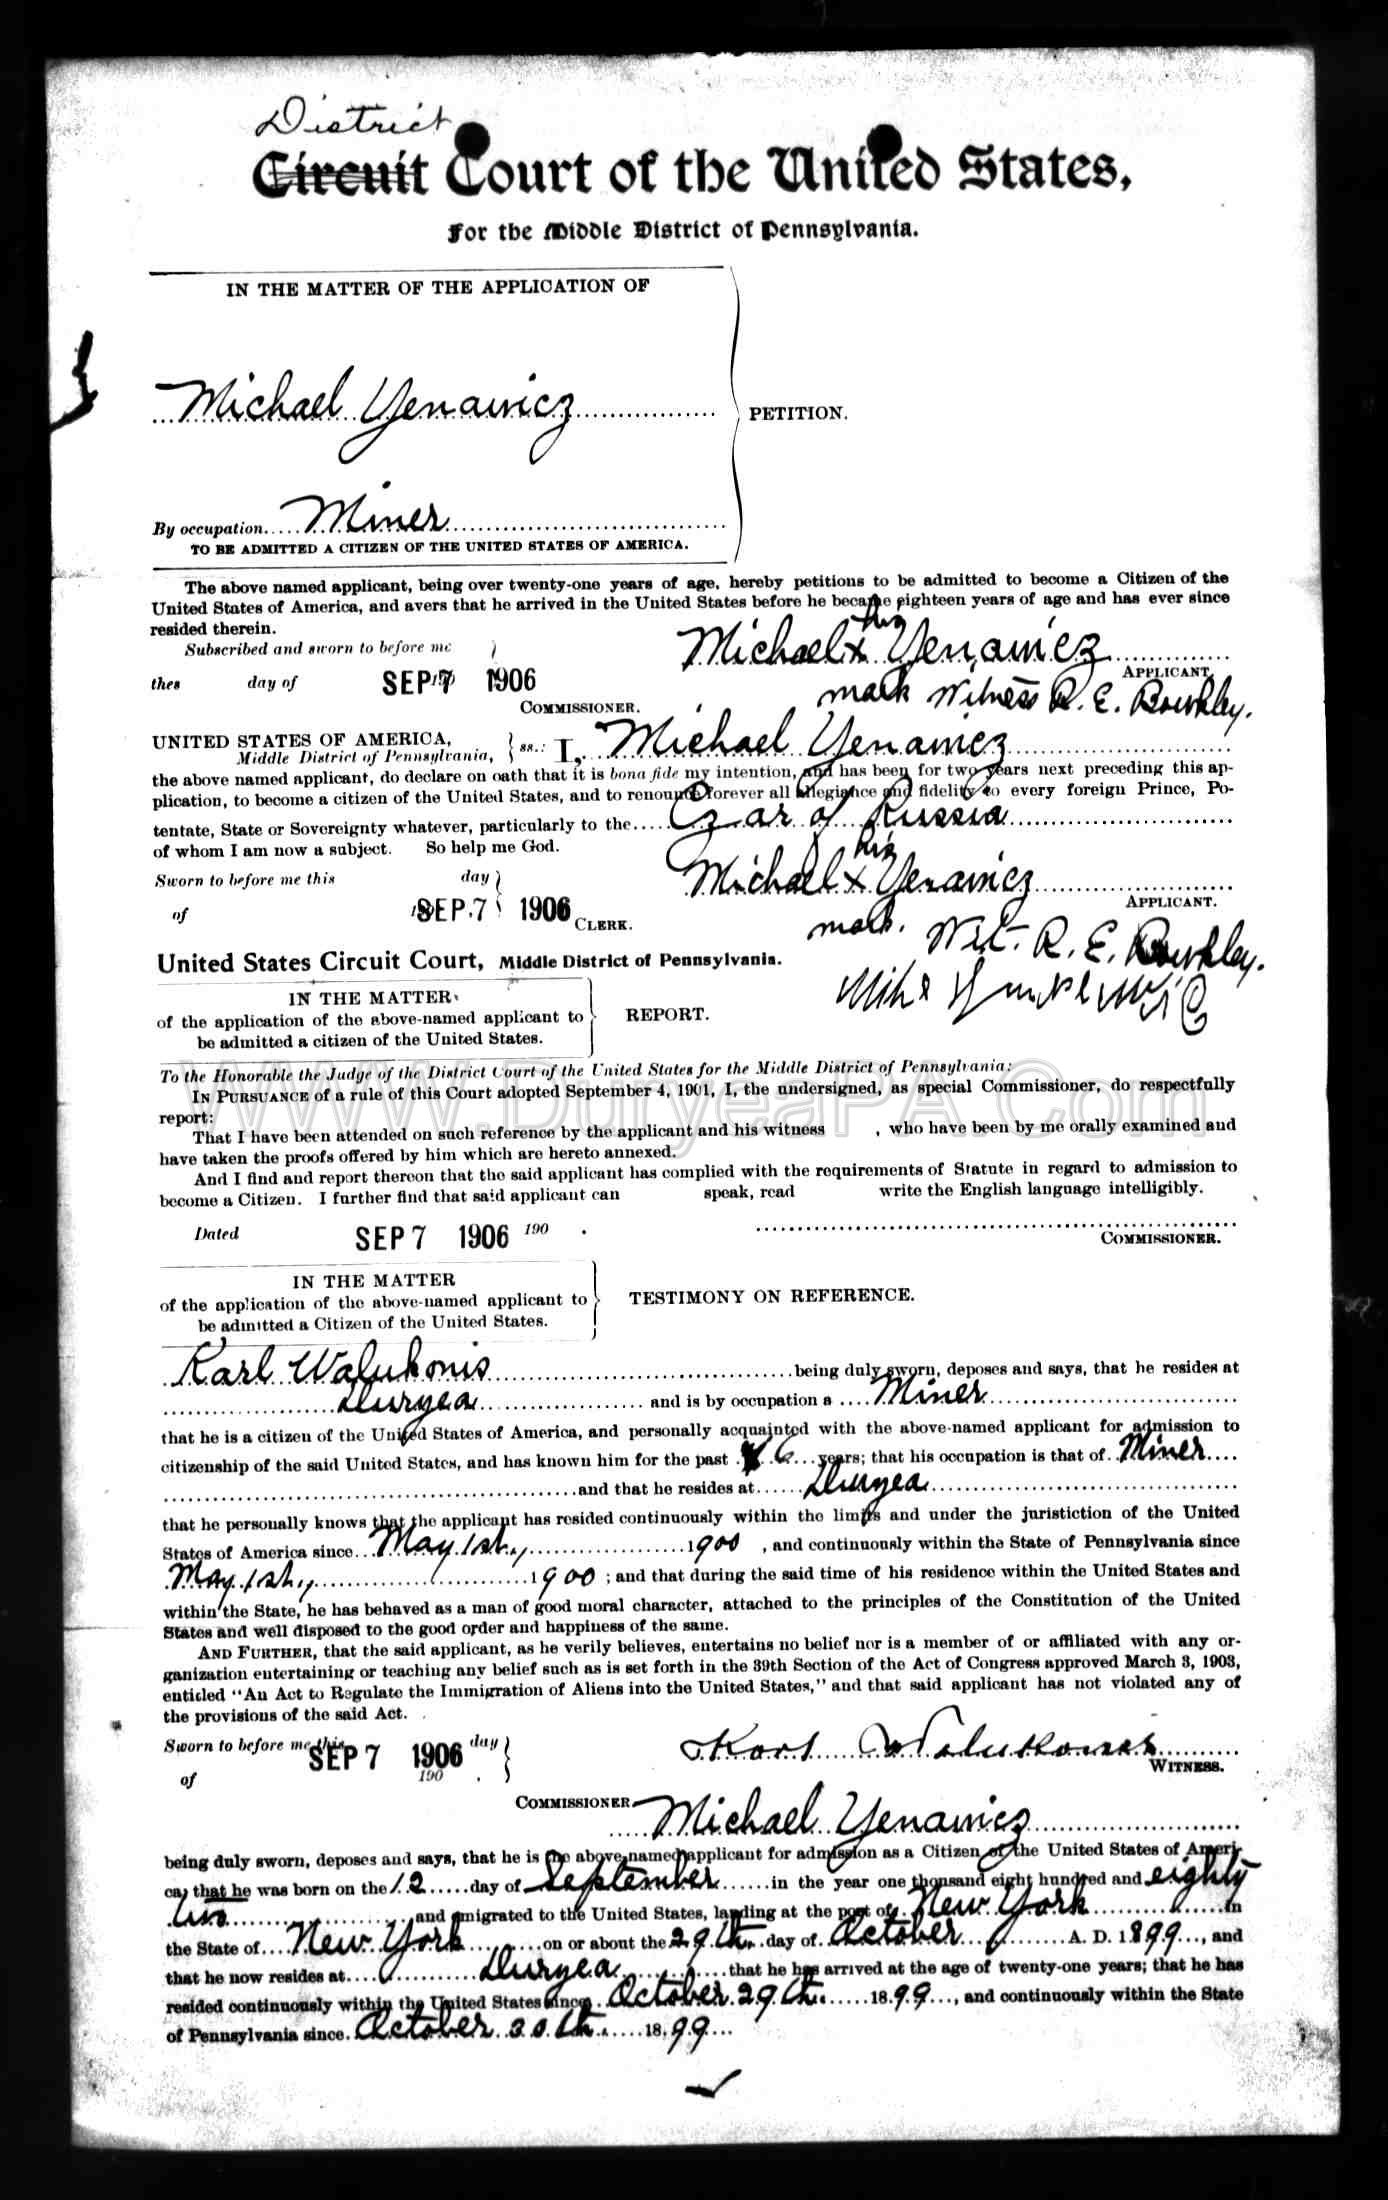 District
Circuit Court of the United States,
For the Middle District of Pennsylvania.
IN THE MATTER OF THE APPLICATION OF
Michael Yenawicz
PETITION.
By occupation Miner
TO BE ADMITTED A CITIZEN OF THE UNITED STATES OF AMERICA.
The above named applicant, being over twenty-one years of age, hereby petitions to be admitted to become a Citizen of the
United States of America, and avers that he arrived in the United States before he became eighteen years of age and has ever since
resided therein.
his
Subscribed and sworn to before me
Michael x Yenawicz
APPLICANT.
thes day of SEP 7 1906
mark Witness R. E.
COMMISSIONER.
UNITED STATES OF AMERICA,
Middle District of Pennsylvania, ss.: I, Michael Yenawicz
the above named applicant, do declare on oath that it is bona fide my intention, and has been for two years next preceding this ap-
plication, to become a citizen of the United States, and to renounce forever all allegiance and fidelity to every foreign Prince, Po-
tentate, State or Sovereignty whatever, particularly to the Czar of Russia
of whom I am now a subject. So help me God.
his
Sworn to before me this day
Michael x Yenawicz
APPLICANT.
of SEP 7 1906
CLERK.
mark. Wit. R. E.
United States Circuit Court, Middle District of Pennsylvania.
Mike
IN THE MATTER
of the application of the above-named applicant to
be admitted a citizen of the United States.
REPORT.
WWW.DuryeaPA.Com
To the Honorable the Judge of the District Court of the United States for the Middle District of Pennsylvania:
IN PURSUANCE of a rule of this Court adopted September 4, 1901, I, the undersigned, as special Commissioner, do respectfully
report:
That I have been attended on such reference by the applicant and his witness , who have been by me orally examined and
have taken the proofs offered by him which are hereto annexed.
And I find and report thereon that the said applicant has complied with the requirements of Statute in regard to admission to
become a Citizen. I further find that said applicant can speak, read write the English language intelligibly.
Dated SEP 7 1906 190 .
COMMISSIONER.
IN THE MATTER
of the application of the above-named applicant to
be admitted a Citizen of the United States.
TESTIMONY ON REFERENCE.
Karl Walukonis being duly sworn, deposes and says, that he resides at
Duryea and is by occupation a Miner
that he is a citizen of the United States of America, and personally acquainted with the above-named applicant for admission to
citizenship of the said United States, and has known him for the past 6 years; that his occupation is that of Miner
and that he resides at Duryea
that he personally knows that the applicant has resided continuously within the limits and under the juristiction of the United
States of America since May 1st, 1900 , and continuously within the State of Pennsylvania since
May 1st, 1900 ; and that during the said time of his residence within the United States and
within the State, he has behaved as a man of good moral character, attached to the principles of the Constitution of the United
States and well disposed to the good order and happiness of the same.
AND FURTHER, that the said applicant, as he verily believes, entertains no belief nor is a member of or affiliated with any or-
ganization entertaining or teaching any belief such as is set forth in the 39th Section of the Act of Congress approved March 3, 1903,
entitled "An Act to Regulate the Immigration of Aliens into the United States," and that said applicant has not violated any of
the provisions of the said Act.
Sworn to before me this SEP 7 1906 day
of 190 .
Karl Walukonis
WITNESS.
COMMISSIONER
Michael Yenawicz
being duly sworn, deposes and says, that he is the above named applicant for admission as a Citizen of the United States of Ameri-
ca, that he was born on the 12 day of September in the year one thousand eight hundred and eighty
two and emigrated to the United States, landing at the port of New York in
the State of New York on or about the 29th day of October A. D. 1899, and
that he now resides at Duryea that he has arrived at the age of twenty-one years; that he has
resided continuously within the United States since October 29th. 1899, and continuously within the State
of Pennsylvania since October 30th. 1899